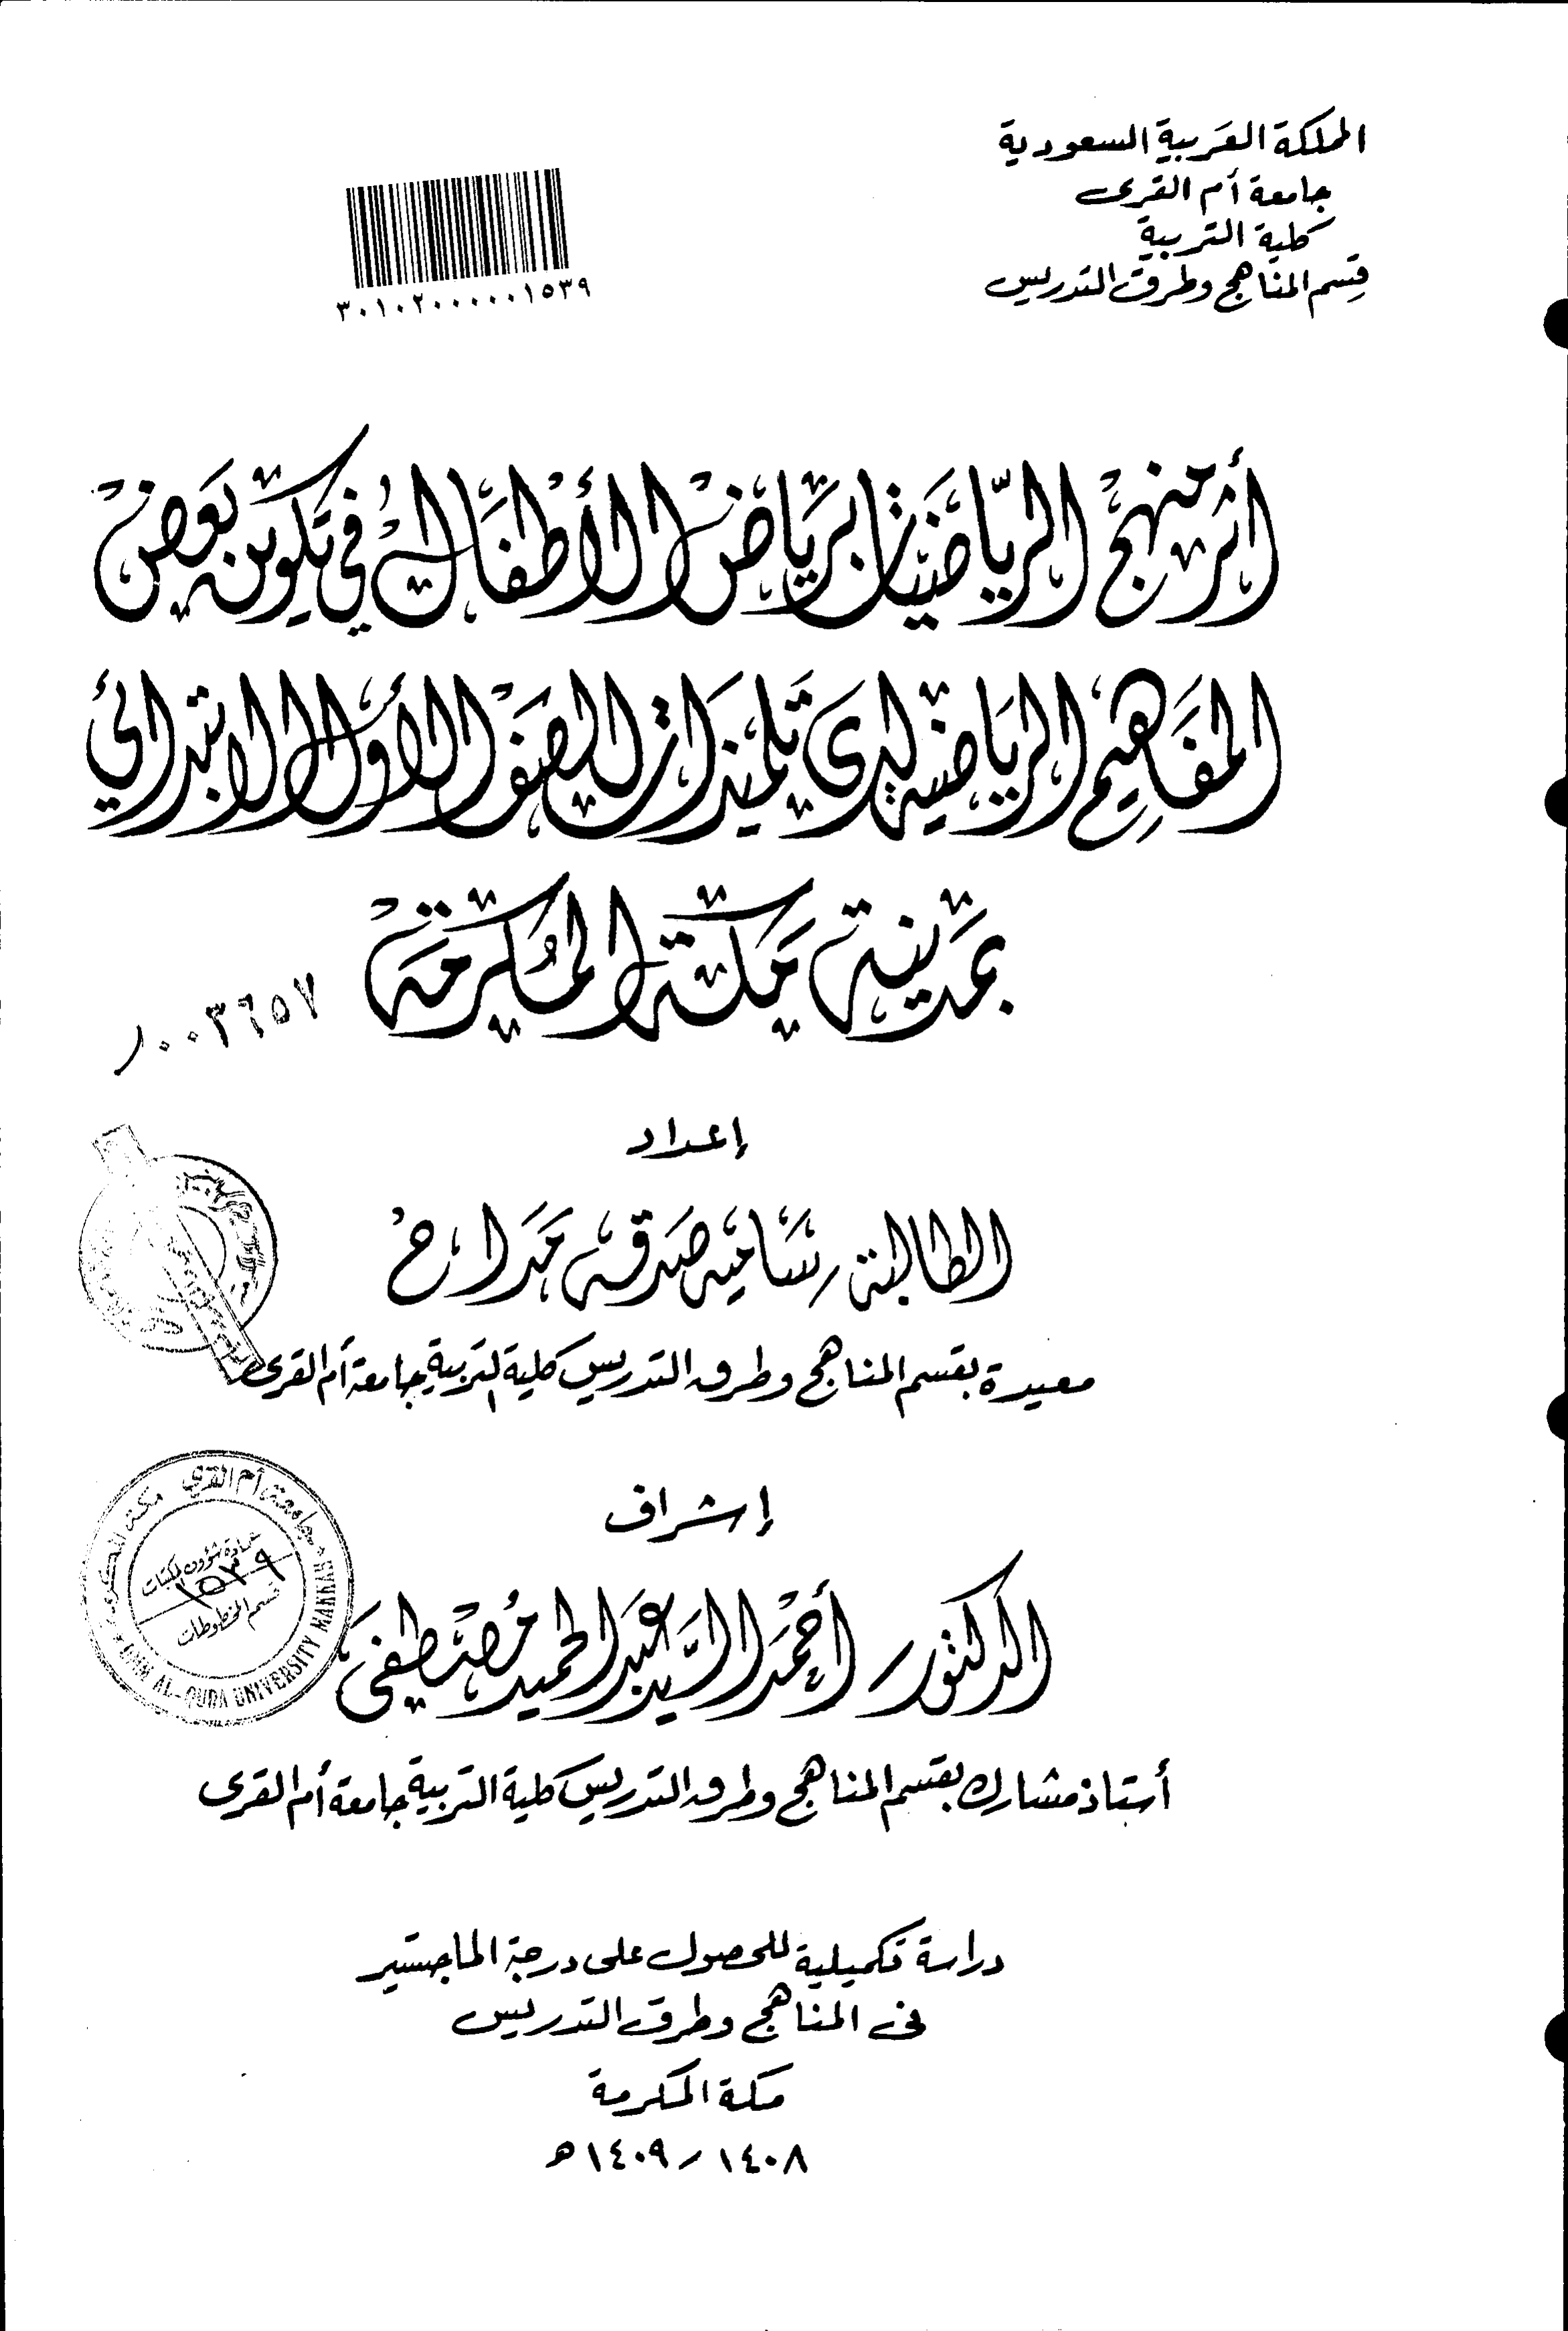 المملكة العربية السعودية
جامعة أم القرى
كلية التربية
قسم المناهج وطرق التدريس
٣٠١٠٢٠٠٠٠٠٠١٥٣٩
أثر منهج الرياضيات برياض الأطفال في تكوين بعض
المفاهيم الرياضية لدى تلميذات الصف الأول الابتدائي
بمدينة مكة المكرمة
١٠٠٣٦٥٧
إعداد
الطالبة سامية صدقة مداح
معيدة بقسم المناهج وطرق التدريس كلية التربية جامعة أم القرى
إشراف
الدكتور أحمد السيد عبد الحميد مصطفى
أستاذ مشارك بقسم المناهج وطرق التدريس كلية التربية جامعة أم القرى
جامعة أم القرى مكة المكرمة
عمادة شؤون المكتبات
١٥٣٩
قسم المخطوطات
UMM AL-QURA UNIVERSITY MAKKAH
دراسة تكميلية للحصول على درجة الماجستير
في المناهج وطرق التدريس
مكة المكرمة
١٤٠٨ / ١٤٠٩ هـ